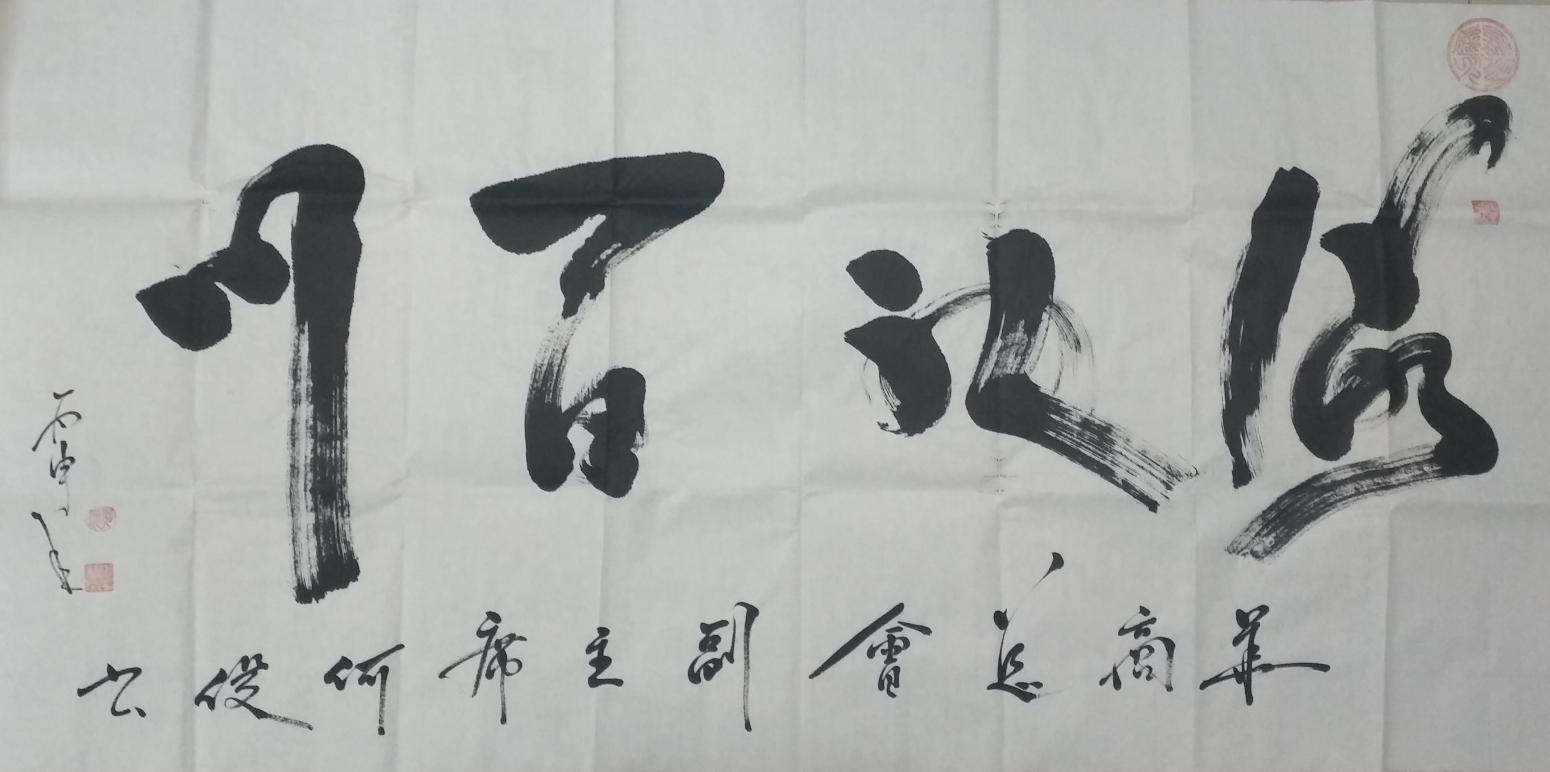 海納百川
華商总會副主席何俊书
丙申年